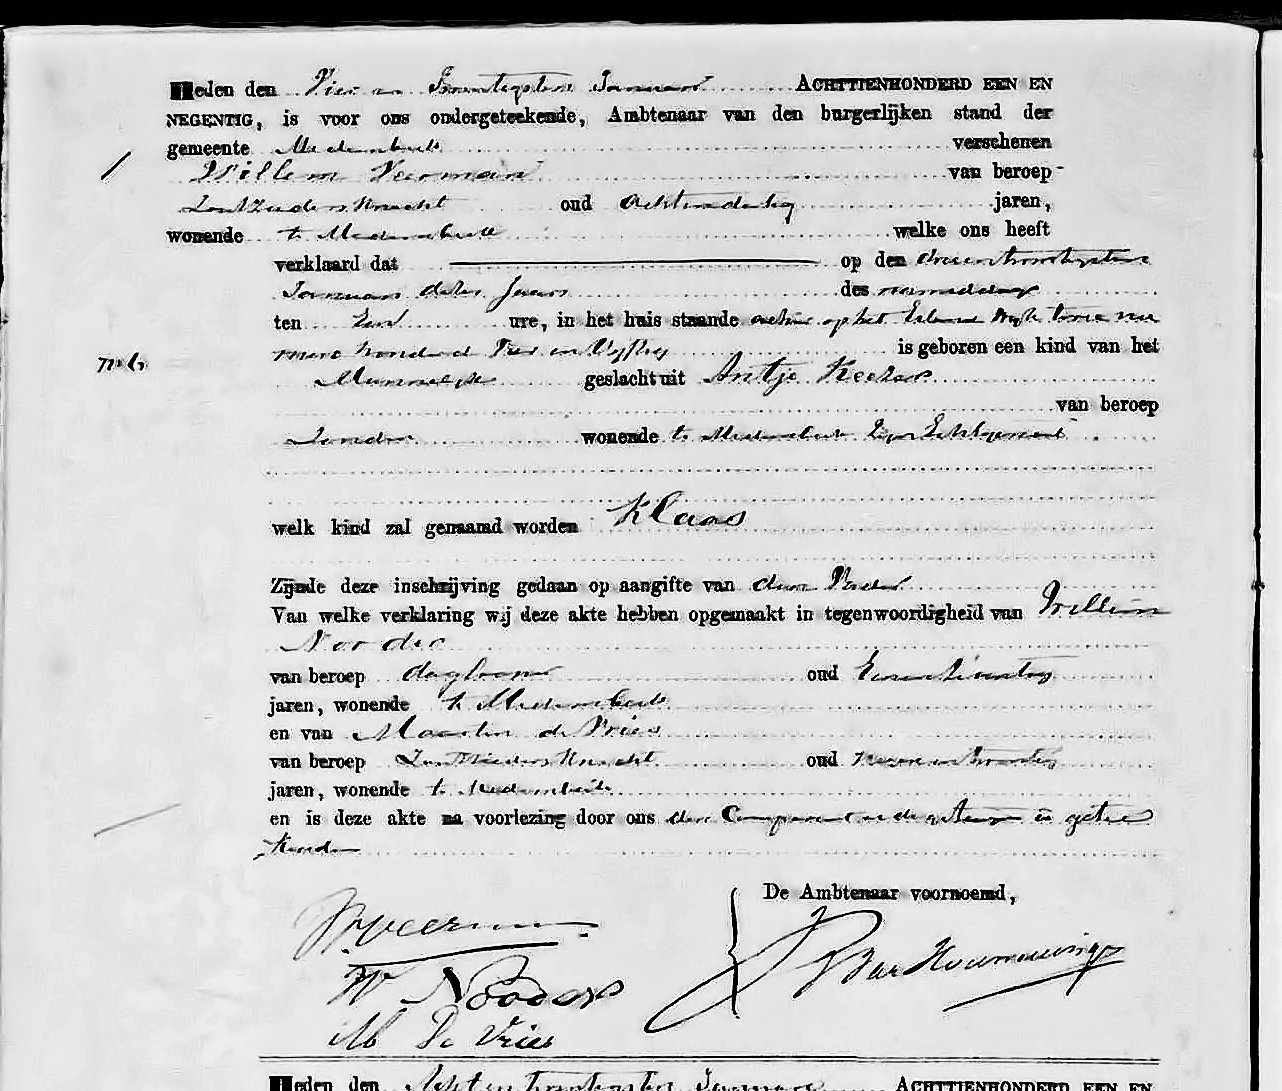 Heden den Vier en Twintigsten Januari ACHTTIENHONDERD EEN EN
NEGENTIG, is voor ons ondergeteekende, Ambtenaar van den burgerlijken stand der
gemeente Medemblik verschenen
Willem Veerman van beroep
knecht oud Achtendertig jaren,
wonende te Medemblik welke ons heeft
verklaard dat op den drieentwintigsten
Januari dezes Jaars des namiddags
ten Een ure, in het huis staande op het twee
honderd Vijftig is geboren een kind van het
Mannelijk geslacht uit Antje Keeker
van beroep
zonder wonende te Medemblik zijne Echtgenoote
welk kind zal genaamd worden Klaas
Zijnde deze inschrijving gedaan op aangifte van den Vader
Van welke verklaring wij deze akte hebben opgemaakt in tegenwoordigheid van Willem
Nooder
van beroep dagloner oud
jaren, wonende te Medemblik
en van Maarten de Vries
van beroep knecht oud
jaren, wonende te Medemblik
en is deze akte na voorlezing door ons den Comparant en de getuigen
De Ambtenaar voornoemd,
No 6
W Veerman
W Nooder
M De Vries
Heden den Acht en twintigsten Januari ACHTTIENHONDERD EEN EN